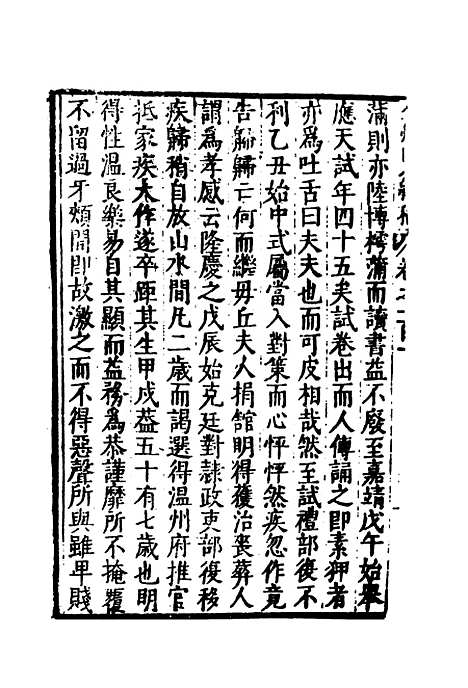 蒲則亦陸博樗蒲而讀書益不廢至嘉靖戊午始舉
應天試年四十五矣試卷出而人傳誦之即素狎者
亦為吐舌曰夫夫也而可皮相哉然至試禮部復不
利乙丑始中式屬當入對策而心怦怦然疾忽作竟
告歸歸亡何而繼母丘夫人捐館明得復治喪葬人
謂為孝感云隆慶之戊辰始克廷對隸政吏部復移
疾歸稍自放山水間凡二歲而謁選得溫州府推官
抵家疾大作遂卒距其生甲戌葢五十有七歲也明
得性溫良樂易自其顯而益務為恭謹靡所不掩覆
不留過牙頰間即故激之而不得惡聲所與雖卑賤